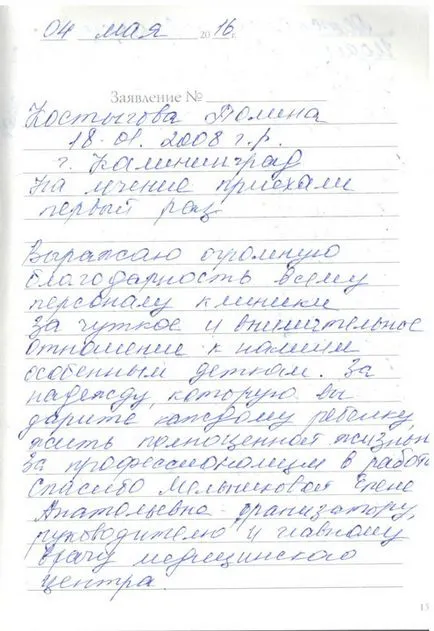 04 мая 2016 г.
Заявление №
Костыгова Полина
18.01.2008 г.р.
г. Калининград
На лечение приехали
первый раз.
Выражаю огромную
благодарность всему
персоналу клиники
за чуткое и внимательное
отношение к нашим
особенным деткам. За
надежду, которую вы
дарите каждому ребенку,
жить полноценной жизнью
За профессионализм в работе
Спасибо Мельниковой Елене
Анатольевне - организатору,
руководителю и главному
врачу медицинского
центра.
13